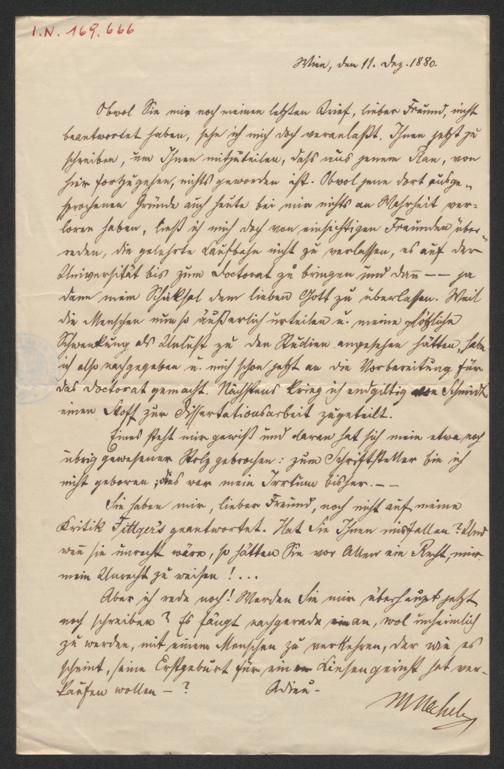 I.N. 169.666
Wien, den 11. Dez. 1880.
Obwol Sie mir noch meinen letzten Brief, lieber Freund, nicht
beantwortet haben, sehe ich mich doch veranlaßt, Ihnen jetzt zu
schreiben, um Ihnen mitzuteilen, dass aus jenem Plan, von
hier fortzugehen, nichts geworden ist. Obwol jene dort ausge-
sprochenen Gründe auch heute bei mir nichts an Wahrheit ver-
loren haben, ließ ich mich doch von einsichtigen Freunden über-
reden, die gelehrte Laufbahn nicht zu verlassen, es auf der
Universität bis zum Doctorat zu bringen und dan –– ja
dann mein Schicksal dem lieben Gott zu überlassen. Weil
die Menschen nun so äußerlich urteilen u. meine plötzliche
Schwenkung als Unlust zu den Studien angesehen hätten, habe
ich also nachgegeben u. mich schon jetzt an die Vorbereitung für
das Doctorat gemacht. Nächstens krieg ich endgiltig von Schmidt
einen Stoff zur Dissertationsarbeit zugeteilt.
Eines steht mir gewiß und daran hat sich mein etwa noch
übrig gewesener Stolz gebrochen: zum Schriftsteller bin ich
nicht geboren; das war mein Irrtum bisher. ––
Sie haben mir, lieber Freund, noch nicht auf meine
Kritik Fittger's geantwortet. Hat sie Ihnen misfallen? Und
wen sie unrecht wäre, so hätten Sie vor Allem ein Recht, mir
mein Unrecht zu weisen!...
Aber ich rede noch! Werden Sie mir überhaupt jetzt
noch schreiben? Es fängt nachgerade an, wol unheimlich
zu werden, mit einem Menschen zu verkehren, der wie es
scheint, seine Erstgeburt für ein Linsengericht hat ver-
kaufen wollen –? Adieu.
MNecker